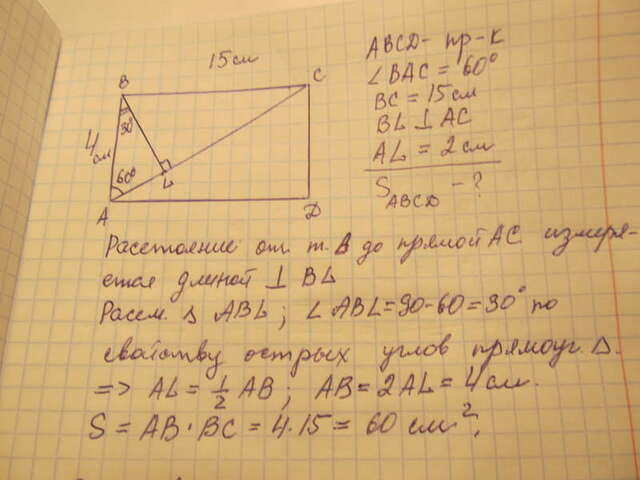 15 см
ABCD - пр-к
∠BAC = 60°
BC = 15 см
BL ⊥ AC
AL = 2 см
S ABCD - ?
B
C
4 см
30°
60°
L
A
D
Расстояние от т. B до прямой AC измеря-
ется длиной ⊥ BL
Рассм. Δ ABL; ∠ ABL = 90-60 = 30° по
свойству острых углов прямоуг. Δ.
=> AL = 1/2 AB; AB = 2AL = 4 см.
S = AB · BC = 4 · 15 = 60 см²,